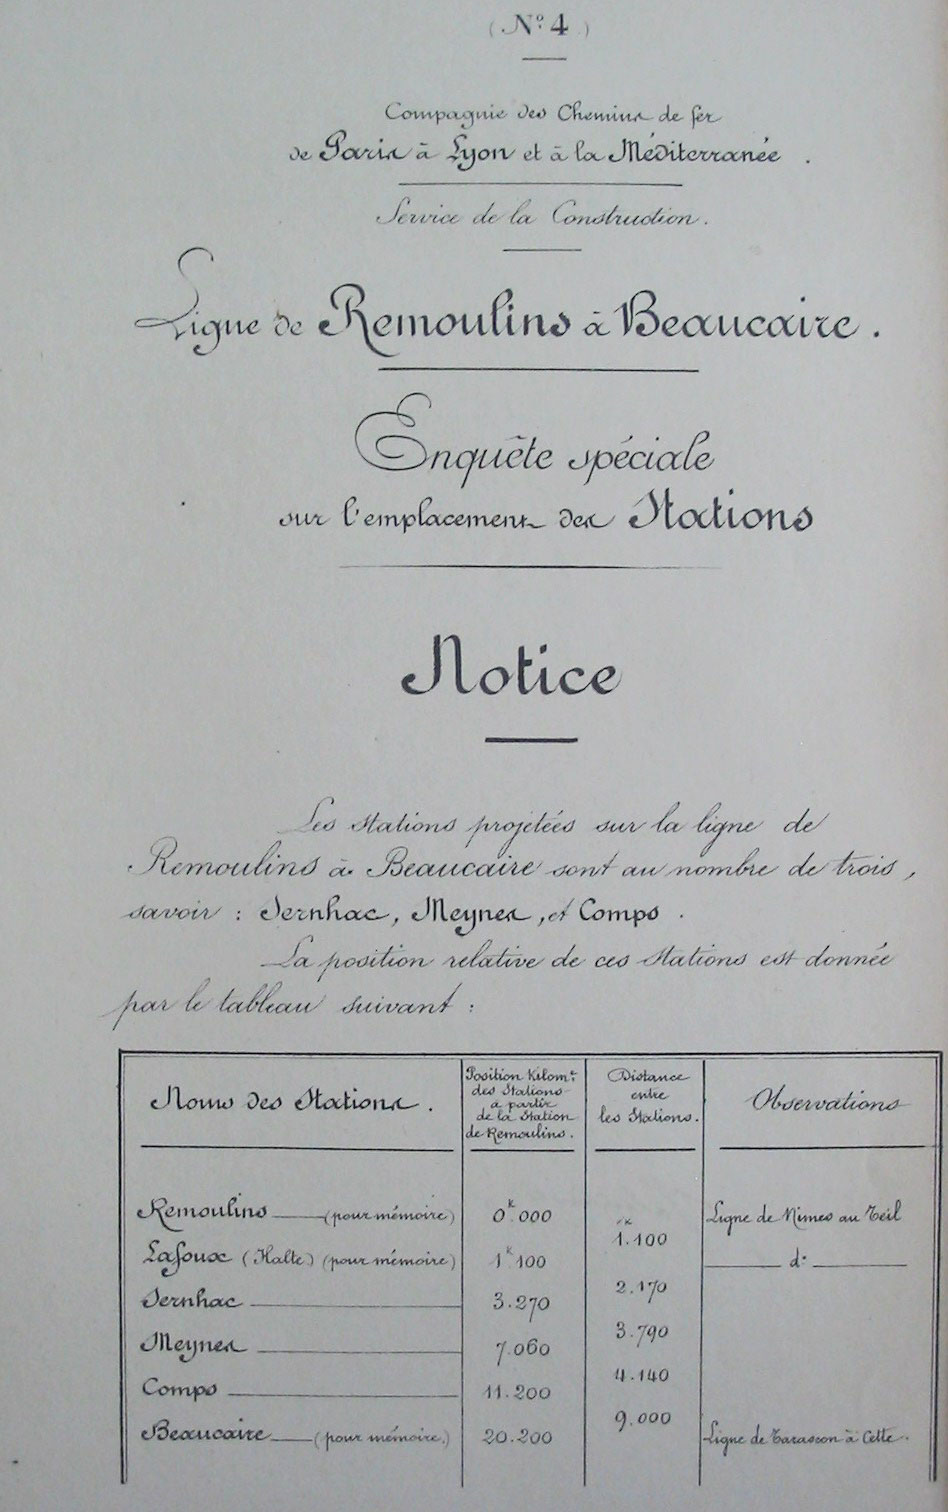 (N° 4)
Compagnie des Chemins de fer
de Paris à Lyon et à la Méditerranée.
Service de la Construction.
Ligne de Remoulins à Beaucaire.
Enquête spéciale
sur l'emplacement des Stations
Notice
Les stations projetées sur la ligne de
Remoulins à Beaucaire sont au nombre de trois,
savoir : Sernhac, Meynes, et Comps.
La position relative de ces stations est donnée
par le tableau suivant :
Noms des Stations. Position Kilom.e des Stations à partir de la Station de Remoulins. Distance entre les Stations. Observations
Remoulins (pour mémoire) 0k.000 Ligne de Nimes au Teil
1k.100
Lafoux (Halte) (pour mémoire) 1k.100 d°
2.170
Sernhac 3.270
3.790
Meynes 7.060
4.140
Comps 11.200
9.000
Beaucaire (pour mémoire.) 20.200 Ligne de Tarascon à Cette.